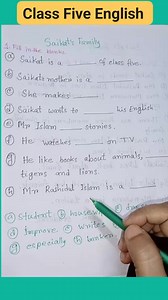 Class Five English
Saikat's Family
1. Fill in the blanks
ⓐ Saikat is a ____ of class five.
ⓑ Saikat's mother is a ____
ⓒ She makes ____
ⓓ Saikat wants to ____ his English.
ⓔ Mr Islam ____ stories.
ⓕ He watches ____ on TV
ⓖ He like books about animals,
tigens and lions.
ⓗ Mr Rashidul Islam is a ____
ⓐ Student ⓑ housewife ⓒ
ⓓ improve ⓔ writes
ⓖ especially ⓗ banker